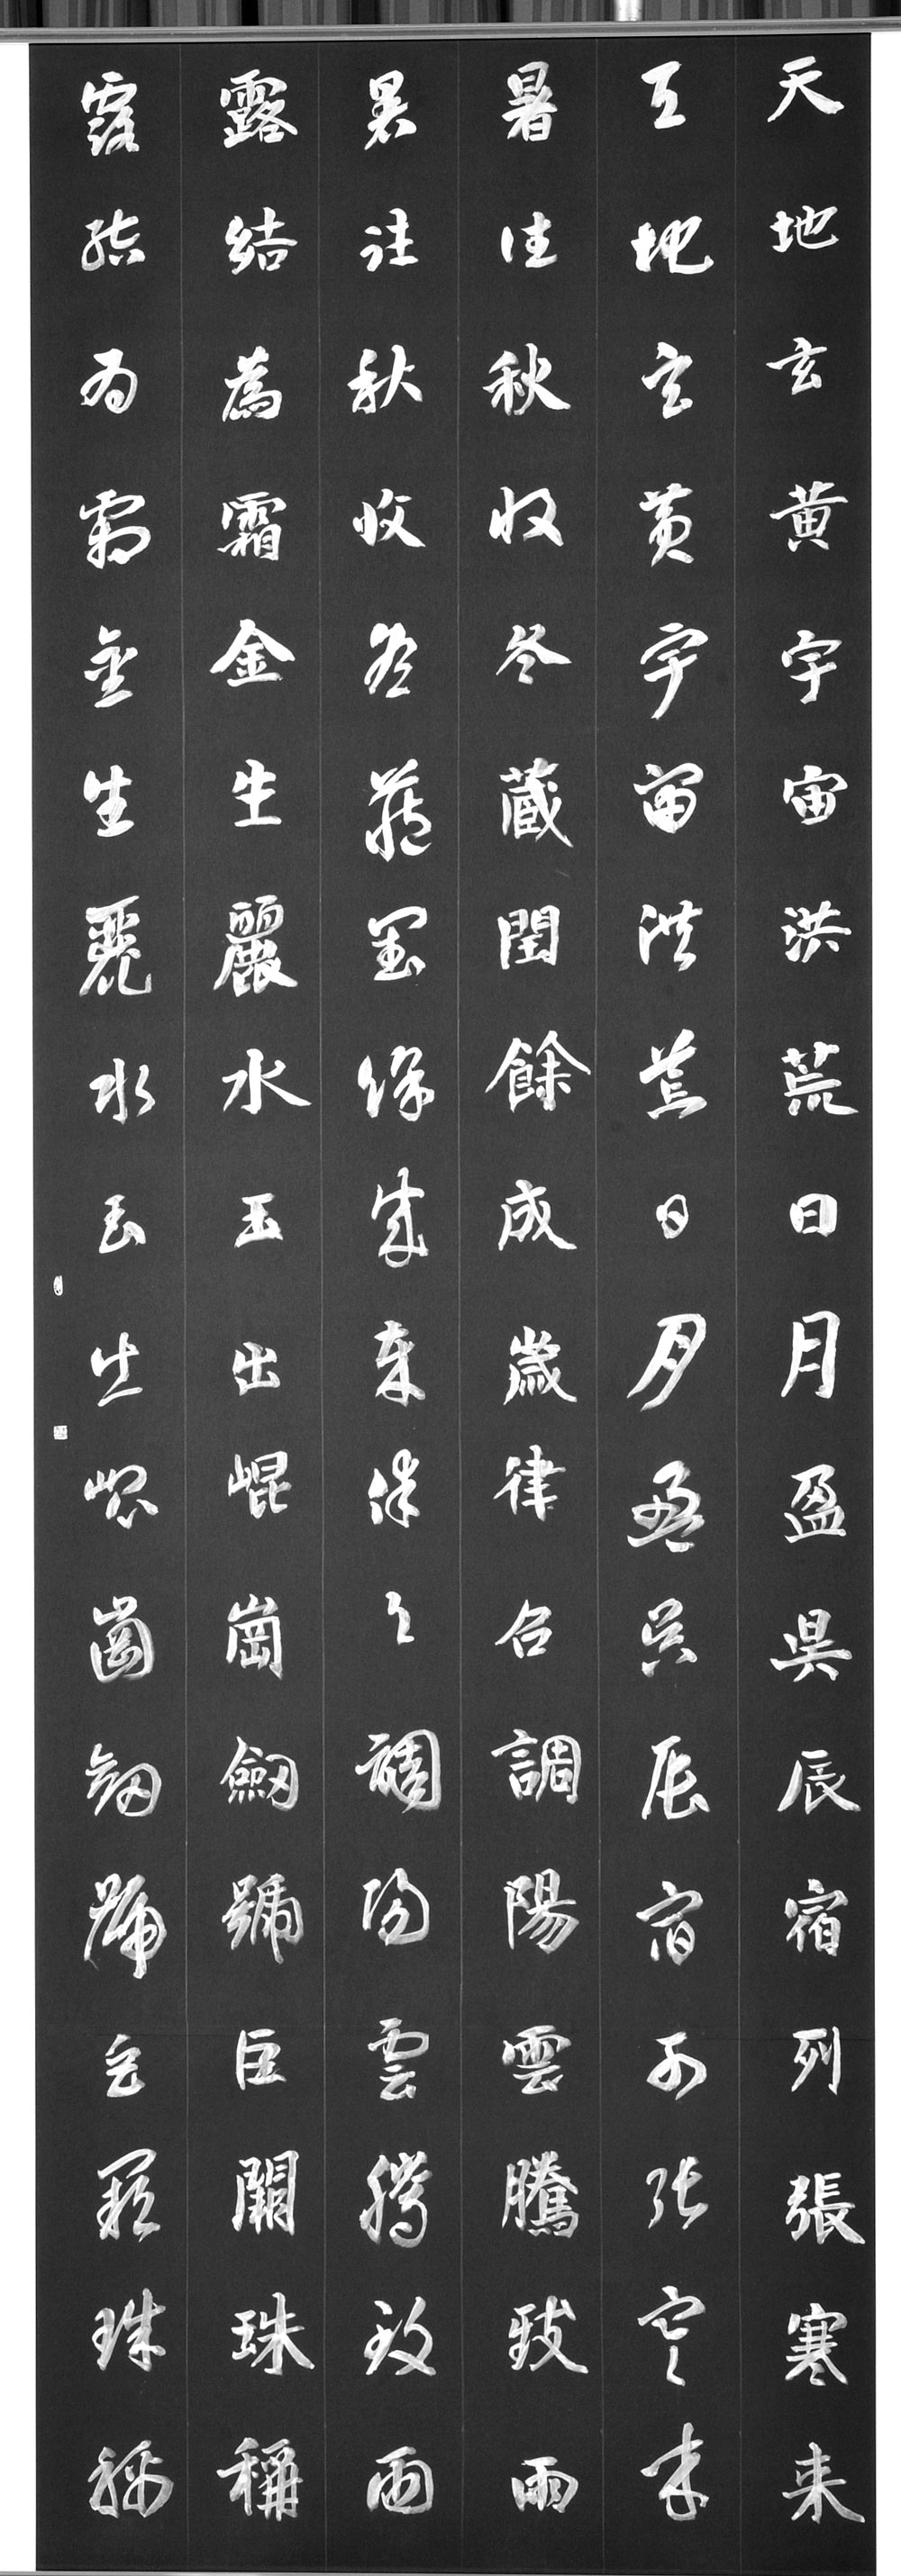 天地玄黄宇宙洪荒日月盈昃辰宿列張寒来
天地玄黄宇宙洪荒日月盈昃辰宿列張寒来
暑往秋収冬蔵閏餘成歳律召調陽雲騰致雨
暑往秋收冬蔵閏餘成歳律召調陽雲騰致雨
露結為霜金生麗水玉出崐崗劔號巨闕珠稱
露結為霜金生麗水玉出崐崗劔號巨闕珠稱